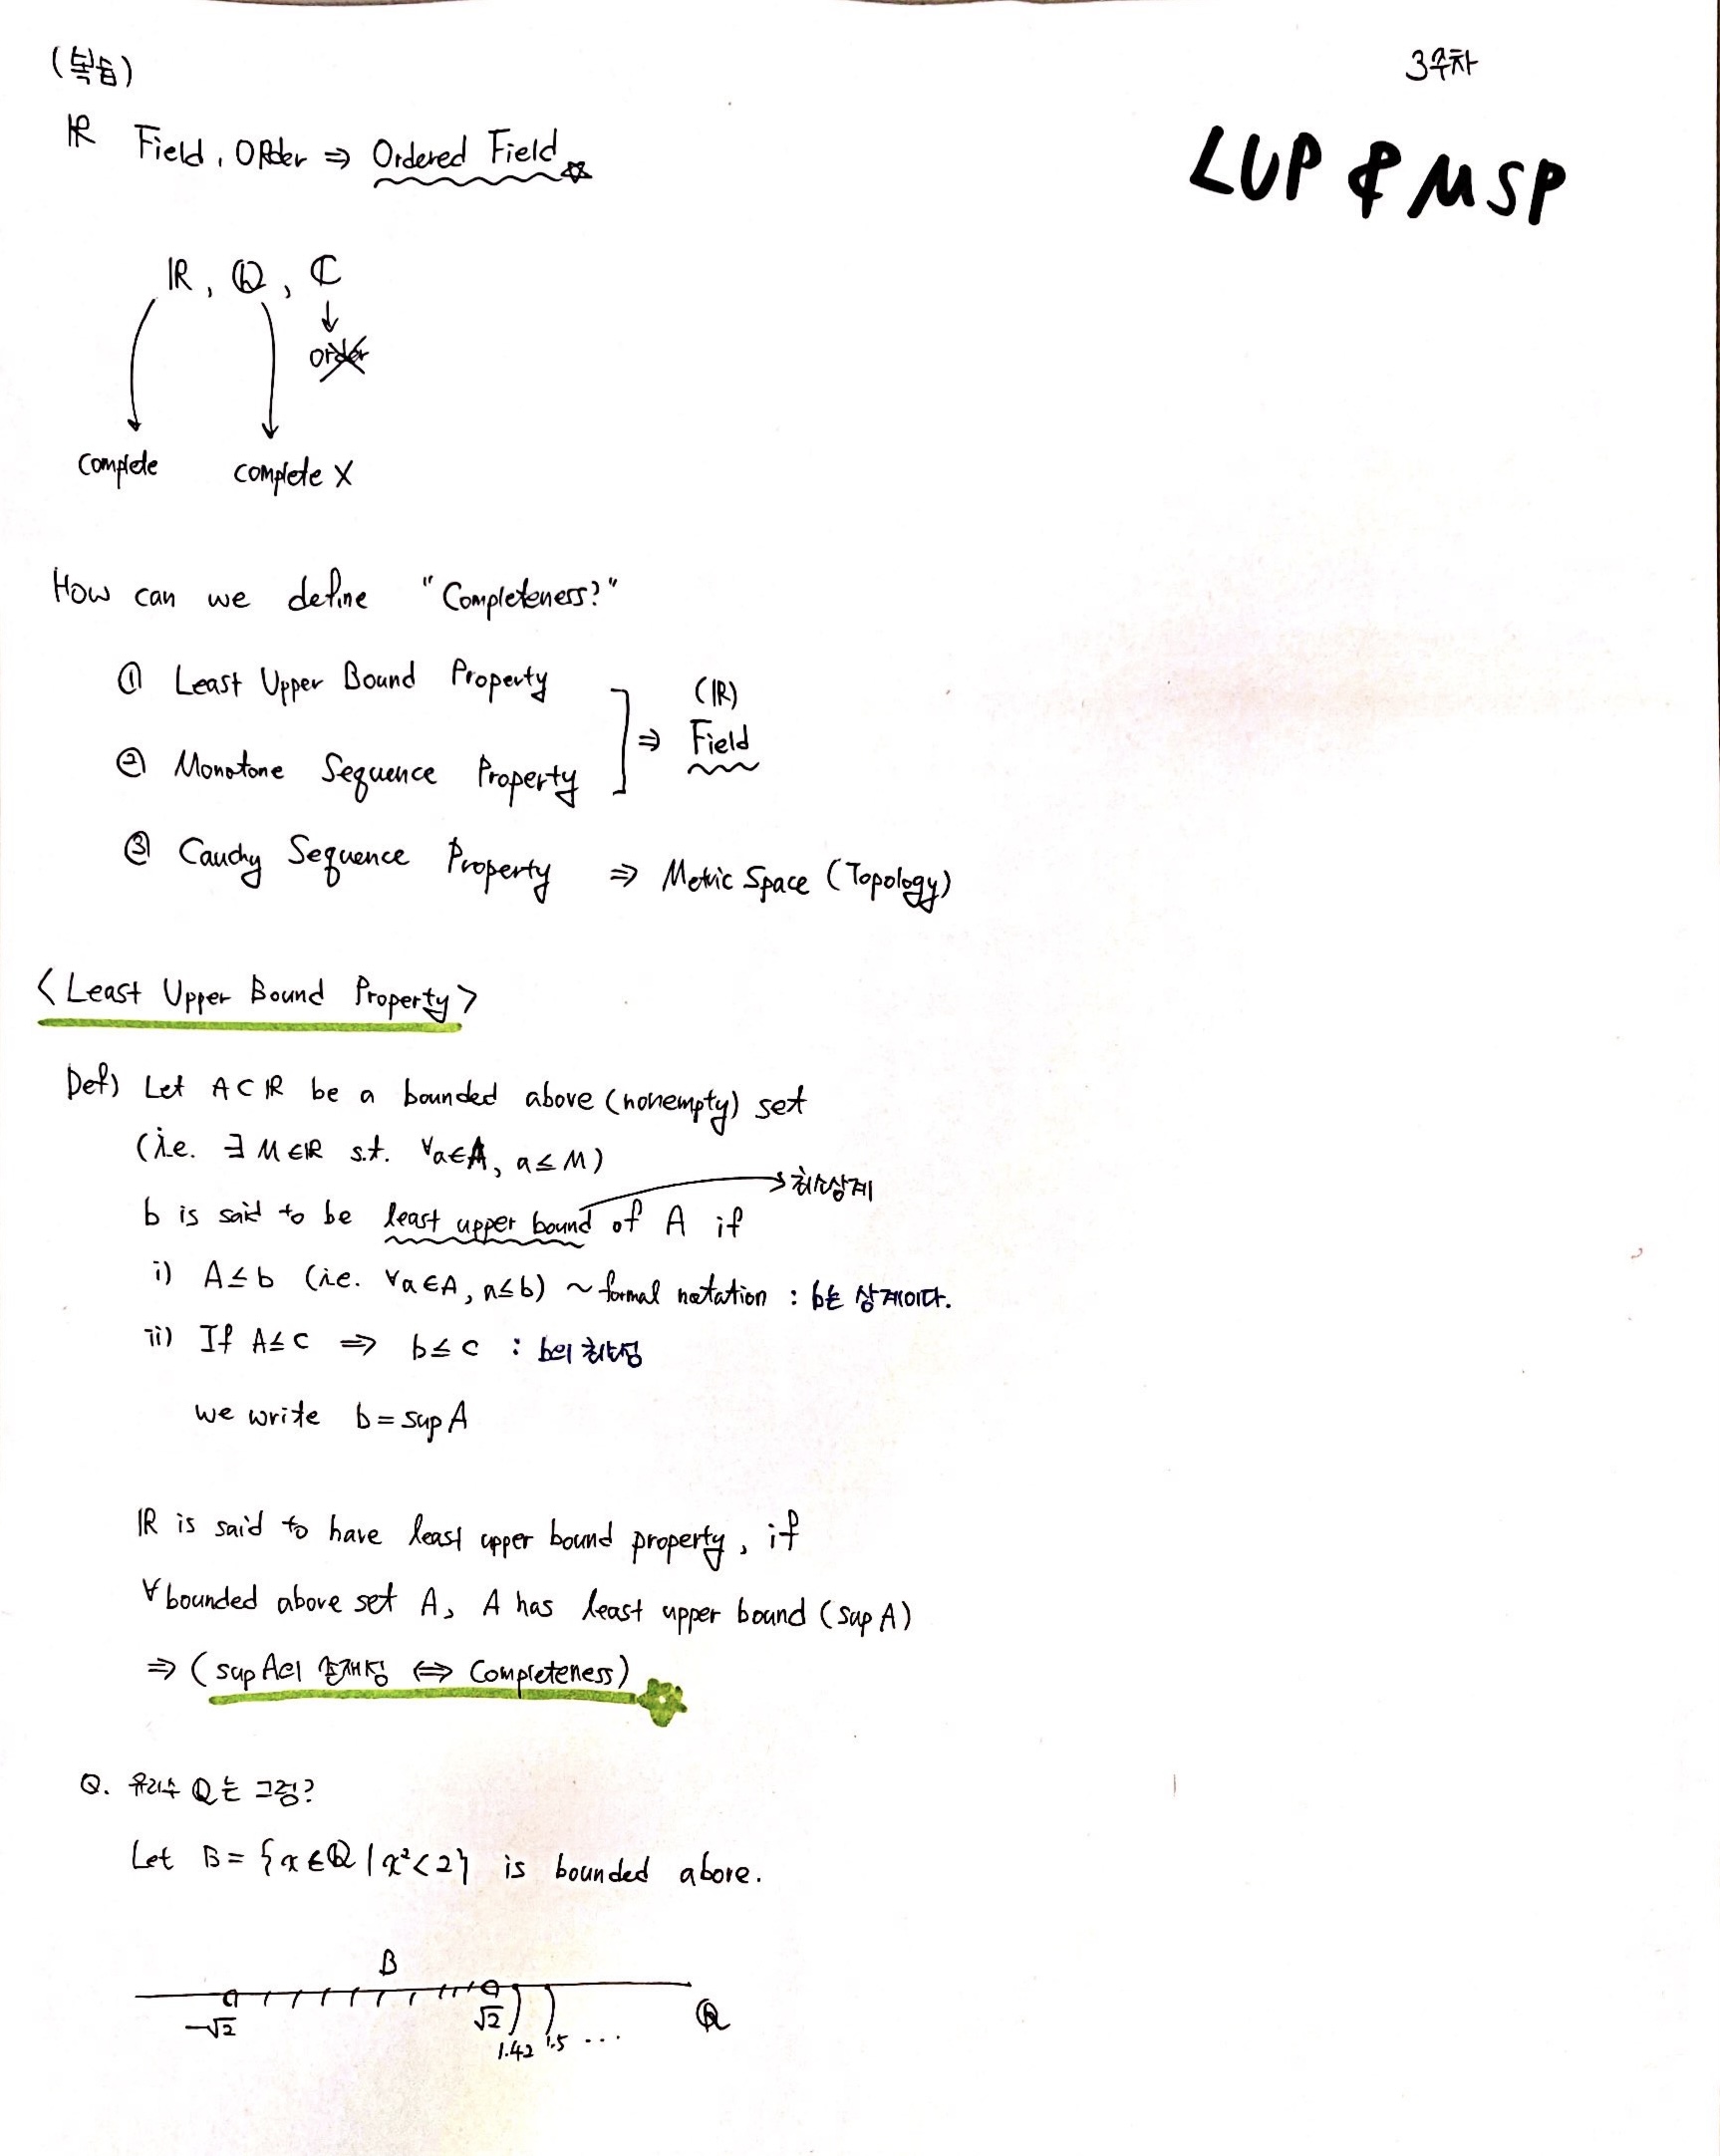 (복습)
3주차
ℝ Field, Order ⇒ Ordered Field ☆
LUP & MSP
ℝ, ℚ, ℂ
order
complete
complete X
How can we define "Completeness?"
① Least Upper Bound Property
② Monotone Sequence Property
⇒ (ℝ) Field
③ Cauchy Sequence Property ⇒ Metric Space (Topology)
<Least Upper Bound Property>
Def) Let A⊂ℝ be a bounded above (nonempty) set
(i.e. ∃M∈ℝ s.t. ∀a∈A, a≤M)
→ 최소상계
b is said to be least upper bound of A if
i) A≤b (i.e. ∀a∈A, a≤b) ~ formal notation : b는 상계이다.
ii) If A≤c ⇒ b≤c : b의 최소성
we write b = sup A
ℝ is said to have least upper bound property, if
∀bounded above set A, A has least upper bound (sup A)
⇒ (sup A의 존재성 ⇔ Completeness)
Q. 유리수 ℚ는 그럼?
Let B = {x∈ℚ | x²<2} is bounded above.
B
-√2
√2
1.42 1.5 ...
ℚ